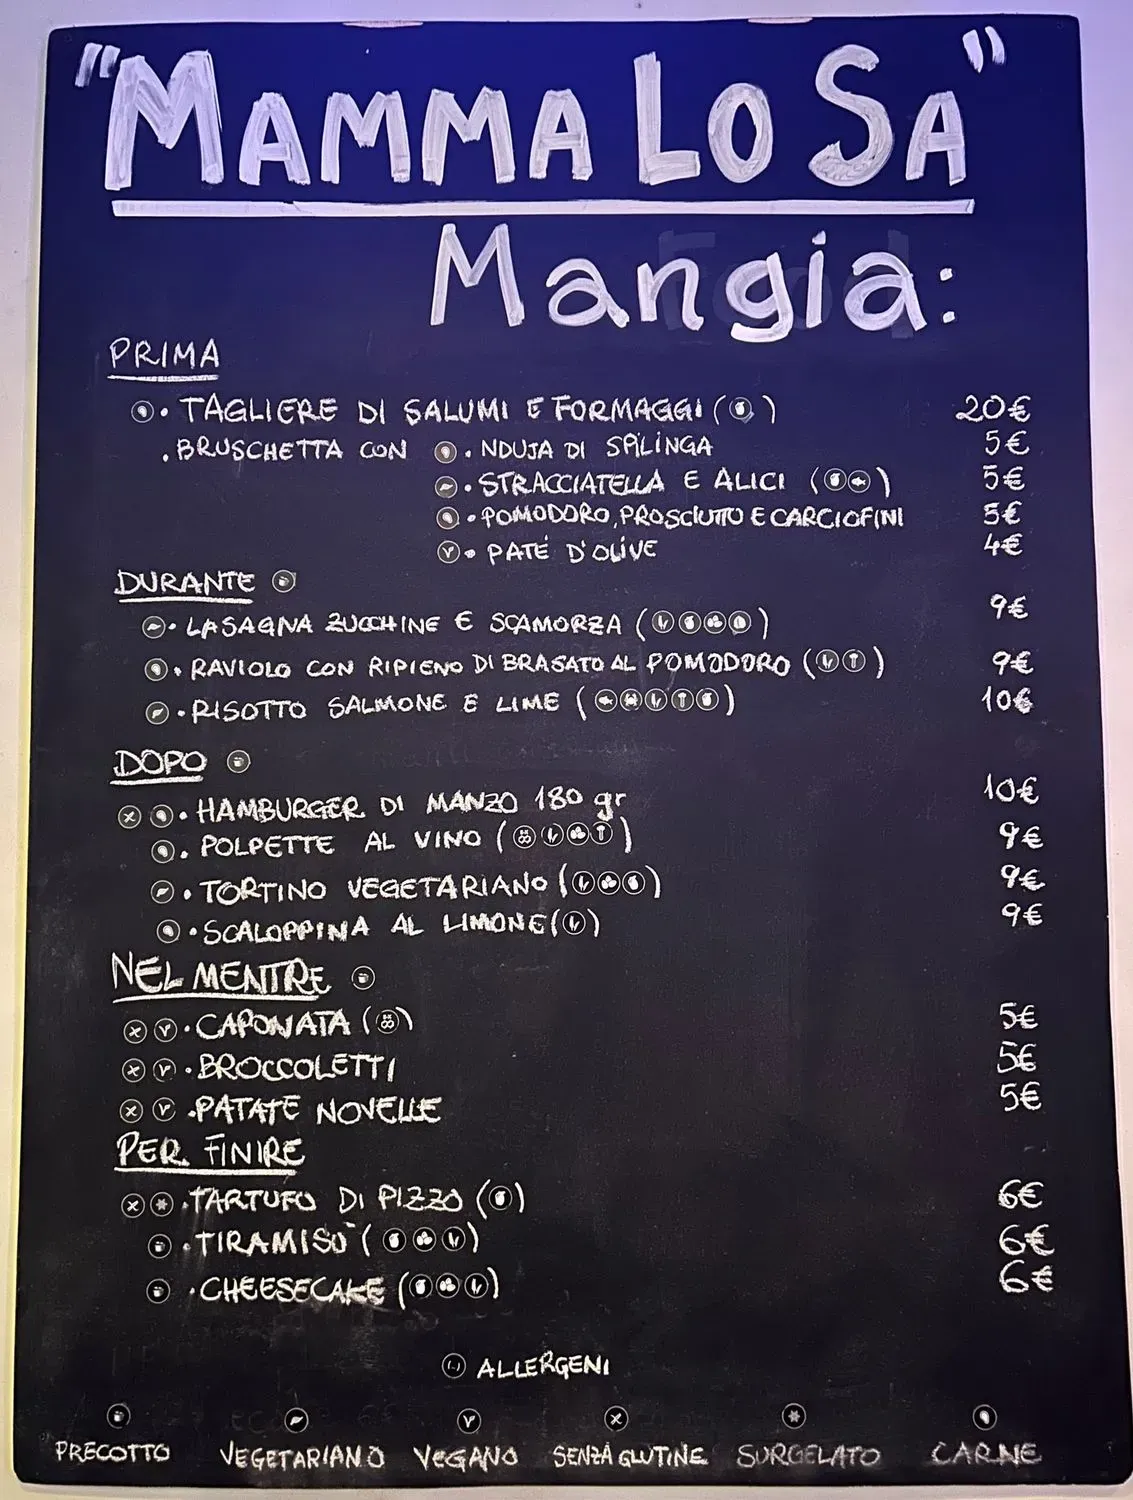 "MAMMA LO SA"
Mangia:
PRIMA
• TAGLIERE DI SALUMI E FORMAGGI ( ) 20€
• BRUSCHETTA CON • NDUJA DI SPILINGA 5€
• STRACCIATELLA E ALICI ( ) 5€
• POMODORO, PROSCIUTTO E CARCIOFINI 5€
V • PATÉ D'OLIVE 4€
DURANTE
• LASAGNA ZUCCHINE E SCAMORZA ( ) 9€
• RAVIOLO CON RIPIENO DI BRASATO AL POMODORO ( ) 9€
• RISOTTO SALMONE E LIME ( ) 10€
DOPO
X • HAMBURGER DI MANZO 180 gr 10€
• POLPETTE AL VINO ( ) 9€
• TORTINO VEGETARIANO ( ) 9€
• SCALOPPINA AL LIMONE ( ) 9€
NEL MENTRE
X V • CAPONATA ( ) 5€
X V • BROCCOLETTI 5€
X V • PATATE NOVELLE 5€
PER FINIRE
X • TARTUFO DI PIZZO ( ) 6€
• TIRAMISÙ ( ) 6€
• CHEESECAKE ( ) 6€
(..) ALLERGENI
V X
PRECOTTO VEGETARIANO VEGANO SENZA GLUTINE SURGELATO CARNE